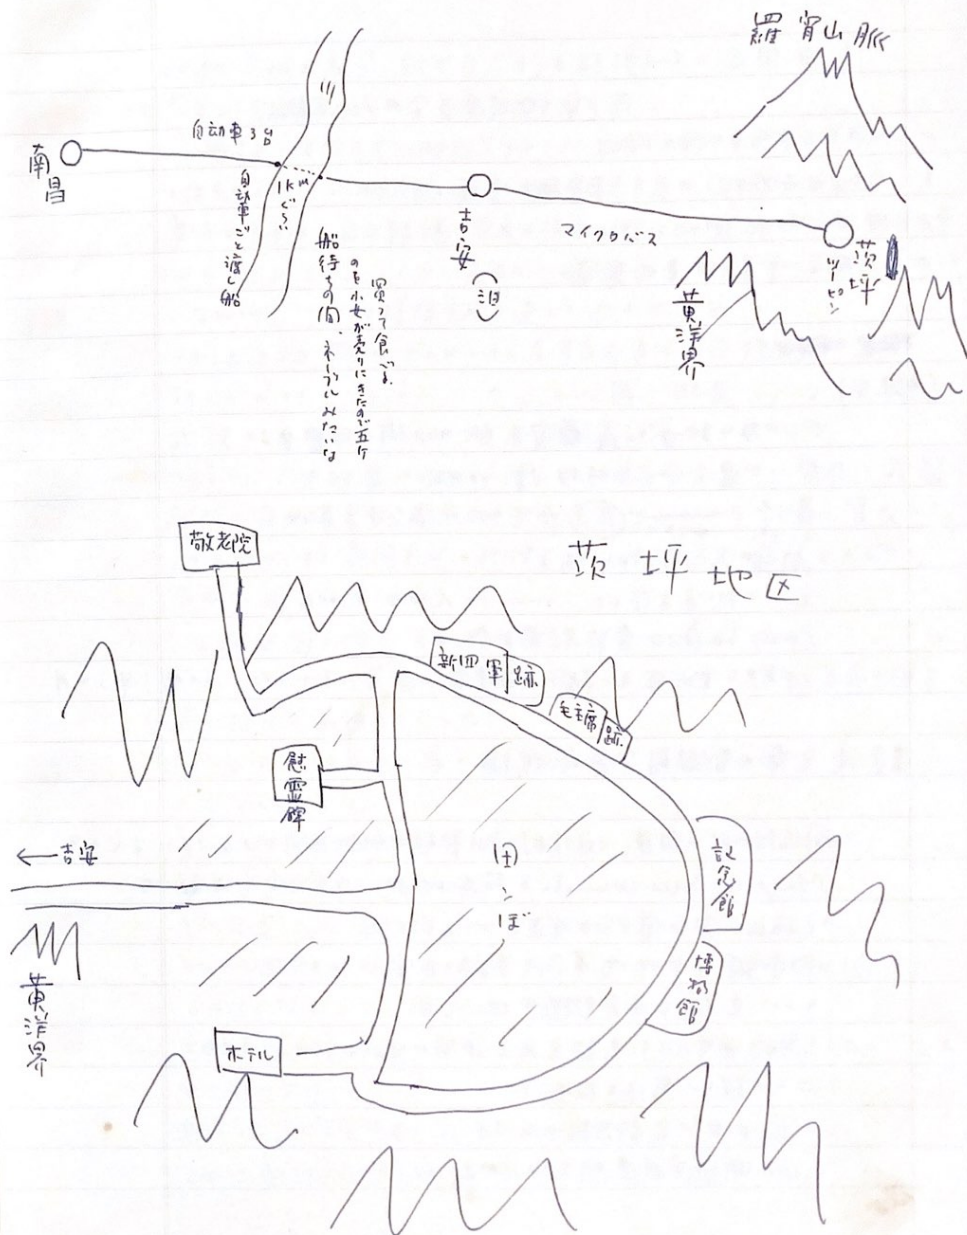 羅宵山脈
南昌
自動車3台
自動車ごと渡し船
1kmぐらい
船待ちの間、ネーブルみたいな
のを少女が売りにきたので五ケ
買って食べる
吉安
(泊)
マイクロバス
茨坪
ツーピン
黄洋界
茨坪地区
敬老院
新四軍跡
毛主席跡
慰霊碑
←吉安
田んぼ
記念館
博物館
黄洋界
ホテル